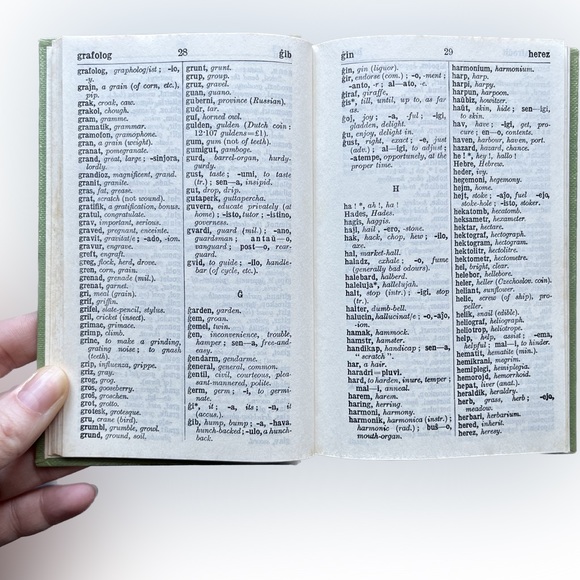 grafolog 28 ĝib
grafolog, grapholog/ist ; -io,
-y.
grajn, a grain (of corn, etc.),
pip.
grak, croak, caw.
grakol, chough.
gram, gramme.
gramatik, grammar.
gramofon, gramophone.
gran, a grain (weight).
granat, pomegranate.
grand, great, large ; -sinjora,
lordly.
grandioz, magnificent, grand.
granit, granite.
gras, fat, grease.
grat, scratch (not wound).
gratifik, a gratification, bonus.
gratul, congratulate.
grav, important, serious.
graved, pregnant, enceinte.
gravit, gravitat/e ; -ado, -ion.
gravur, engrave.
greft, engraft.
greg, flock, herd, drove.
gren, corn, grain.
grenad, grenade (mil.).
grenat, garnet.
gri, meal (grain).
grif, griffin.
grifel, slate-pencil, stylus.
gril, cricket (insect).
grimac, grimace.
grimp, climb.
grinc, to make a grinding,
grating noise ; to gnash
(teeth).
grip, influenza, grippe.
griz, gray.
grog, grog.
gros, gooseberry.
groŝ, groschen.
grot, grotto.
grotesk, grotesque.
gru, crane (bird).
grumbl, grumble, growl.
grund, ground, soil.
grunt, grunt.
grup, group.
gruz, gravel.
guan, guano.
guberni, province (Russian).
gudr, tar.
guf, horned owl.
gulden, gulden (Dutch coin :
12·107 guldens=£1).
gum, gum (not of teeth).
gumigut, gamboge.
gurd, barrel-organ, hurdy-
gurdy.
gust, taste ; -umi, to taste
(tr.) ; sen—a, insipid.
gut, drop, drip.
gutaperk, guttapercha.
guvern, educate privately (at
home) ; -isto, tutor ; -istino,
governess.
gvardi, guard (mil.) ; -ano,
guardsman ; antaŭ—o,
vanguard ; post—o, rear-
guard.
gvid, to guide ; -ilo, handle-
bar (of cycle, etc.).
Ĝ
ĝarden, garden.
ĝem, groan.
ĝemel, twin.
ĝen, inconvenience, trouble,
hamper ; sen—a, free-and-
easy.
ĝendarm, gendarme.
ĝeneral, general, common.
ĝentil, civil, courteous, pleas-
ant-mannered, polite.
ĝerm, germ ; -i, to germi-
nate.
ĝi*, it ; -a, its ; -n, it
(accus.).
ĝib, hump, hump ; -a, -hava,
hunch-backed ; -ulo, a hunch-
back.
ĝin 29 herez
ĝin, gin (liquor).
ĝir, endorse (com.) ; -o, -ment ;
-anto, -r ; al—ato, -e.
ĝiraf, giraffe.
ĝis*, till, until, up to, as far
as.
ĝoj, joy ; -a, -ful ; -igi,
gladden, delight.
ĝu, enjoy, delight in.
ĝust, right, exact ; -e, just
(adv.) ; al—igi, to adjust ;
-atempe, opportunely, at the
proper time.
H
ha ! *, ah !, ha !
Hades, Hades.
hagis, haggis.
hajl, hail, -ero, -stone.
hak, hack, chop, hew ; -ilo,
axe.
hal, market-hall.
haladz, exhale ; -o, fume
(generally bad odours).
halebard, halberd.
haleluja*, hallelujah.
halt, stop (intr.) ; -igi, stop
(tr.).
halter, dumb-bell.
halucin, hallucinat/e ; -o, -aĵo,
-ion.
hamak, hammock.
hamstr, hamster.
handikap, handicap ; sen—a,
“ scratch ”.
har, a hair.
haradri=pluvi.
hard, to harden, inure, temper ;
mal—i, anneal.
harem, harem.
haring, herring.
harmoni, harmony.
harmonik, harmonica (instr.) ;
harmonic (rad.) ; buŝ—o,
mouth-organ.
harmonium, harmonium.
harp, harp.
harpi, harpy.
harpun, harpoon.
haŭbiz, howitzer.
haŭt, skin, hide ; sen—igi,
to skin.
hav, have ; -igi, get, pro-
cure ; en—o, contents.
haven, harbour, haven, port.
hazard, hazard, chance.
he ! *, hey !, hallo !
Hebre, Hebrew.
heder, ivy.
hegemoni, hegemony.
hejm, home.
hejt, stoke ; -aĵo, fuel -ejo,
stoke-hole ; -isto, stoker.
hekatomb, hecatomb.
heksametr, hexameter.
hektar, hectare.
hektograf, hectograph.
hektogram, hectogram.
hektolitr, hectolitre.
hektometr, hectometre.
hel, bright, clear.
helebor, hellebore.
heler, heller (Czechoslov. coin).
heliant, sunflower.
helic, screw (of ship), pro-
peller.
helik, snail (edible).
heliograf, heliograph.
heliotrop, heliotrope.
help, help, assist ; -ema,
helpful ; mal—i, to hinder.
hematit, hematite (min.).
hemikrani, megrim.
hemiplegi, hemiplegia.
hemorojd, hemorrhoid.
hepat, liver (anat.).
heraldik, heraldry.
herb, grass, herb ; -ejo,
meadow.
herbari, herbarium.
hered, inherit.
herez, heresy.